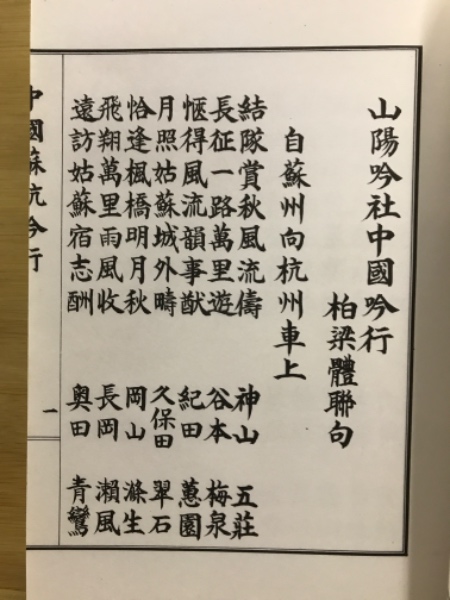 山陽吟社中國吟行
柏梁體聯句
自蘇州向杭州車上
結隊賞秋風流儔 神山 五莊
長征一路萬里遊 谷本 梅泉
愜得風流韻事猷 紀田 蕙園
月照姑蘇城外疇 久保田 翠石
恰逢楓橋明月秋 岡山 滌生
飛翔萬里雨風收 長岡 瀨風
遠訪姑蘇宿志酬 奥田 青鸞
中國蘇杭吟行
一